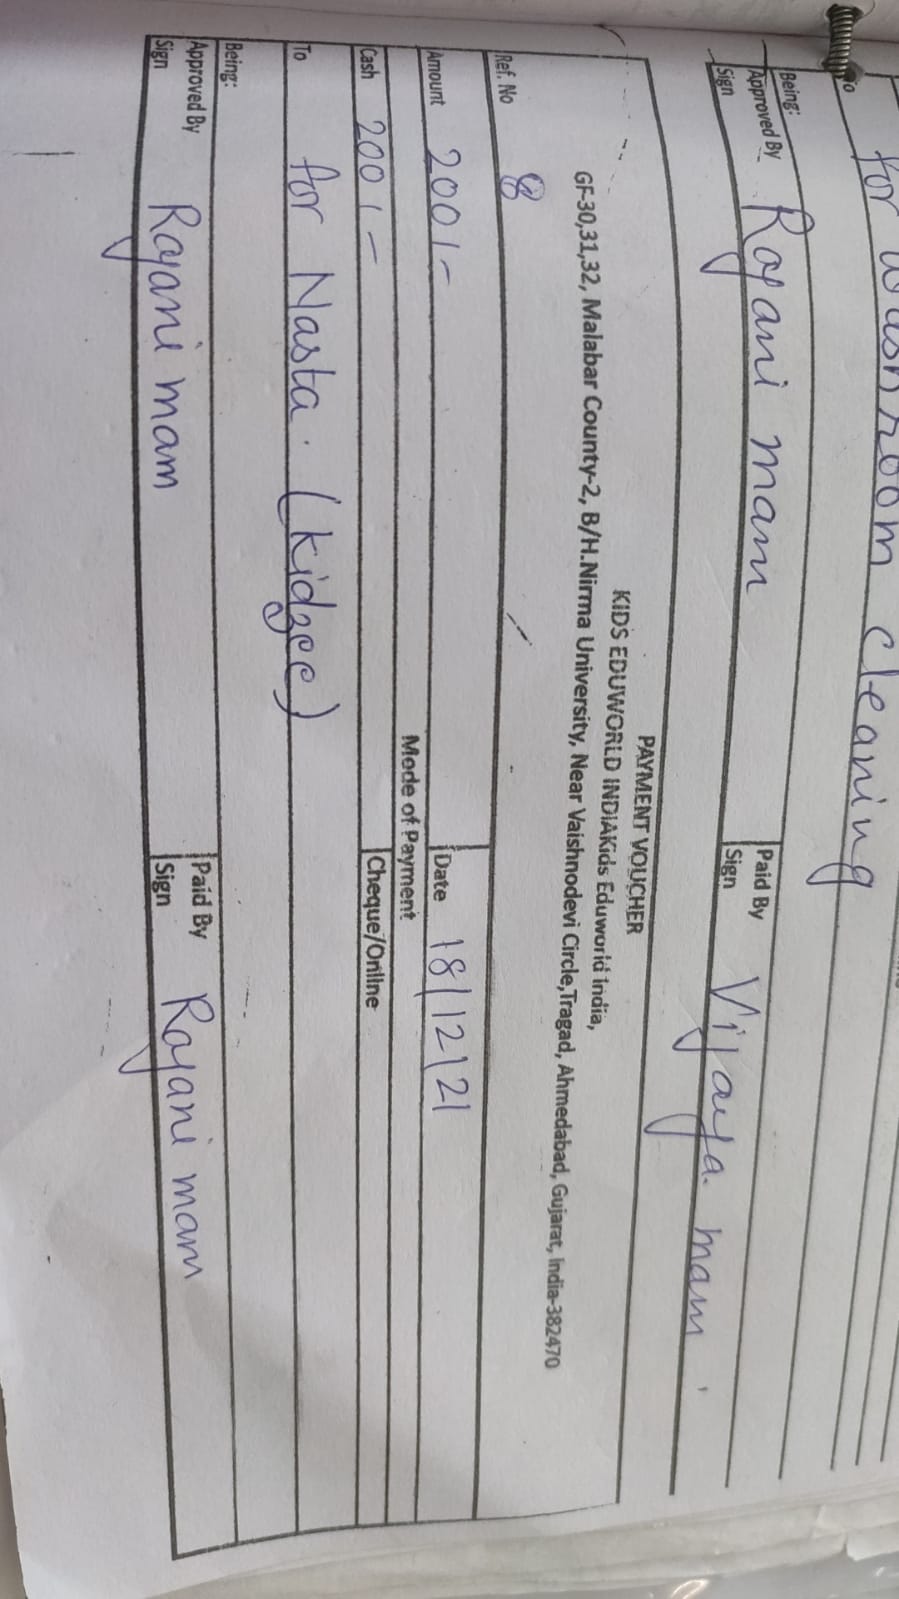 To for washroom cleaning
Being:
Approved By Rajani mam Paid By Vijaya mam.
Sign Sign
PAYMENT VOUCHER
KIDS EDUWORLD INDIAKids Eduworld India,
GF-30,31,32, Malabar County-2, B/H.Nirma University, Near Vaishnodevi Circle,Tragad, Ahmedabad, Gujarat, India-382470
Ref. No 8
Amount 200/- Date 18/12/21
Mode of Payment
Cash 200/- Cheque/Online
To for Nasta. (kidzee)
Being:
Approved By Rajani mam Paid By Rajani mam
Sign Sign